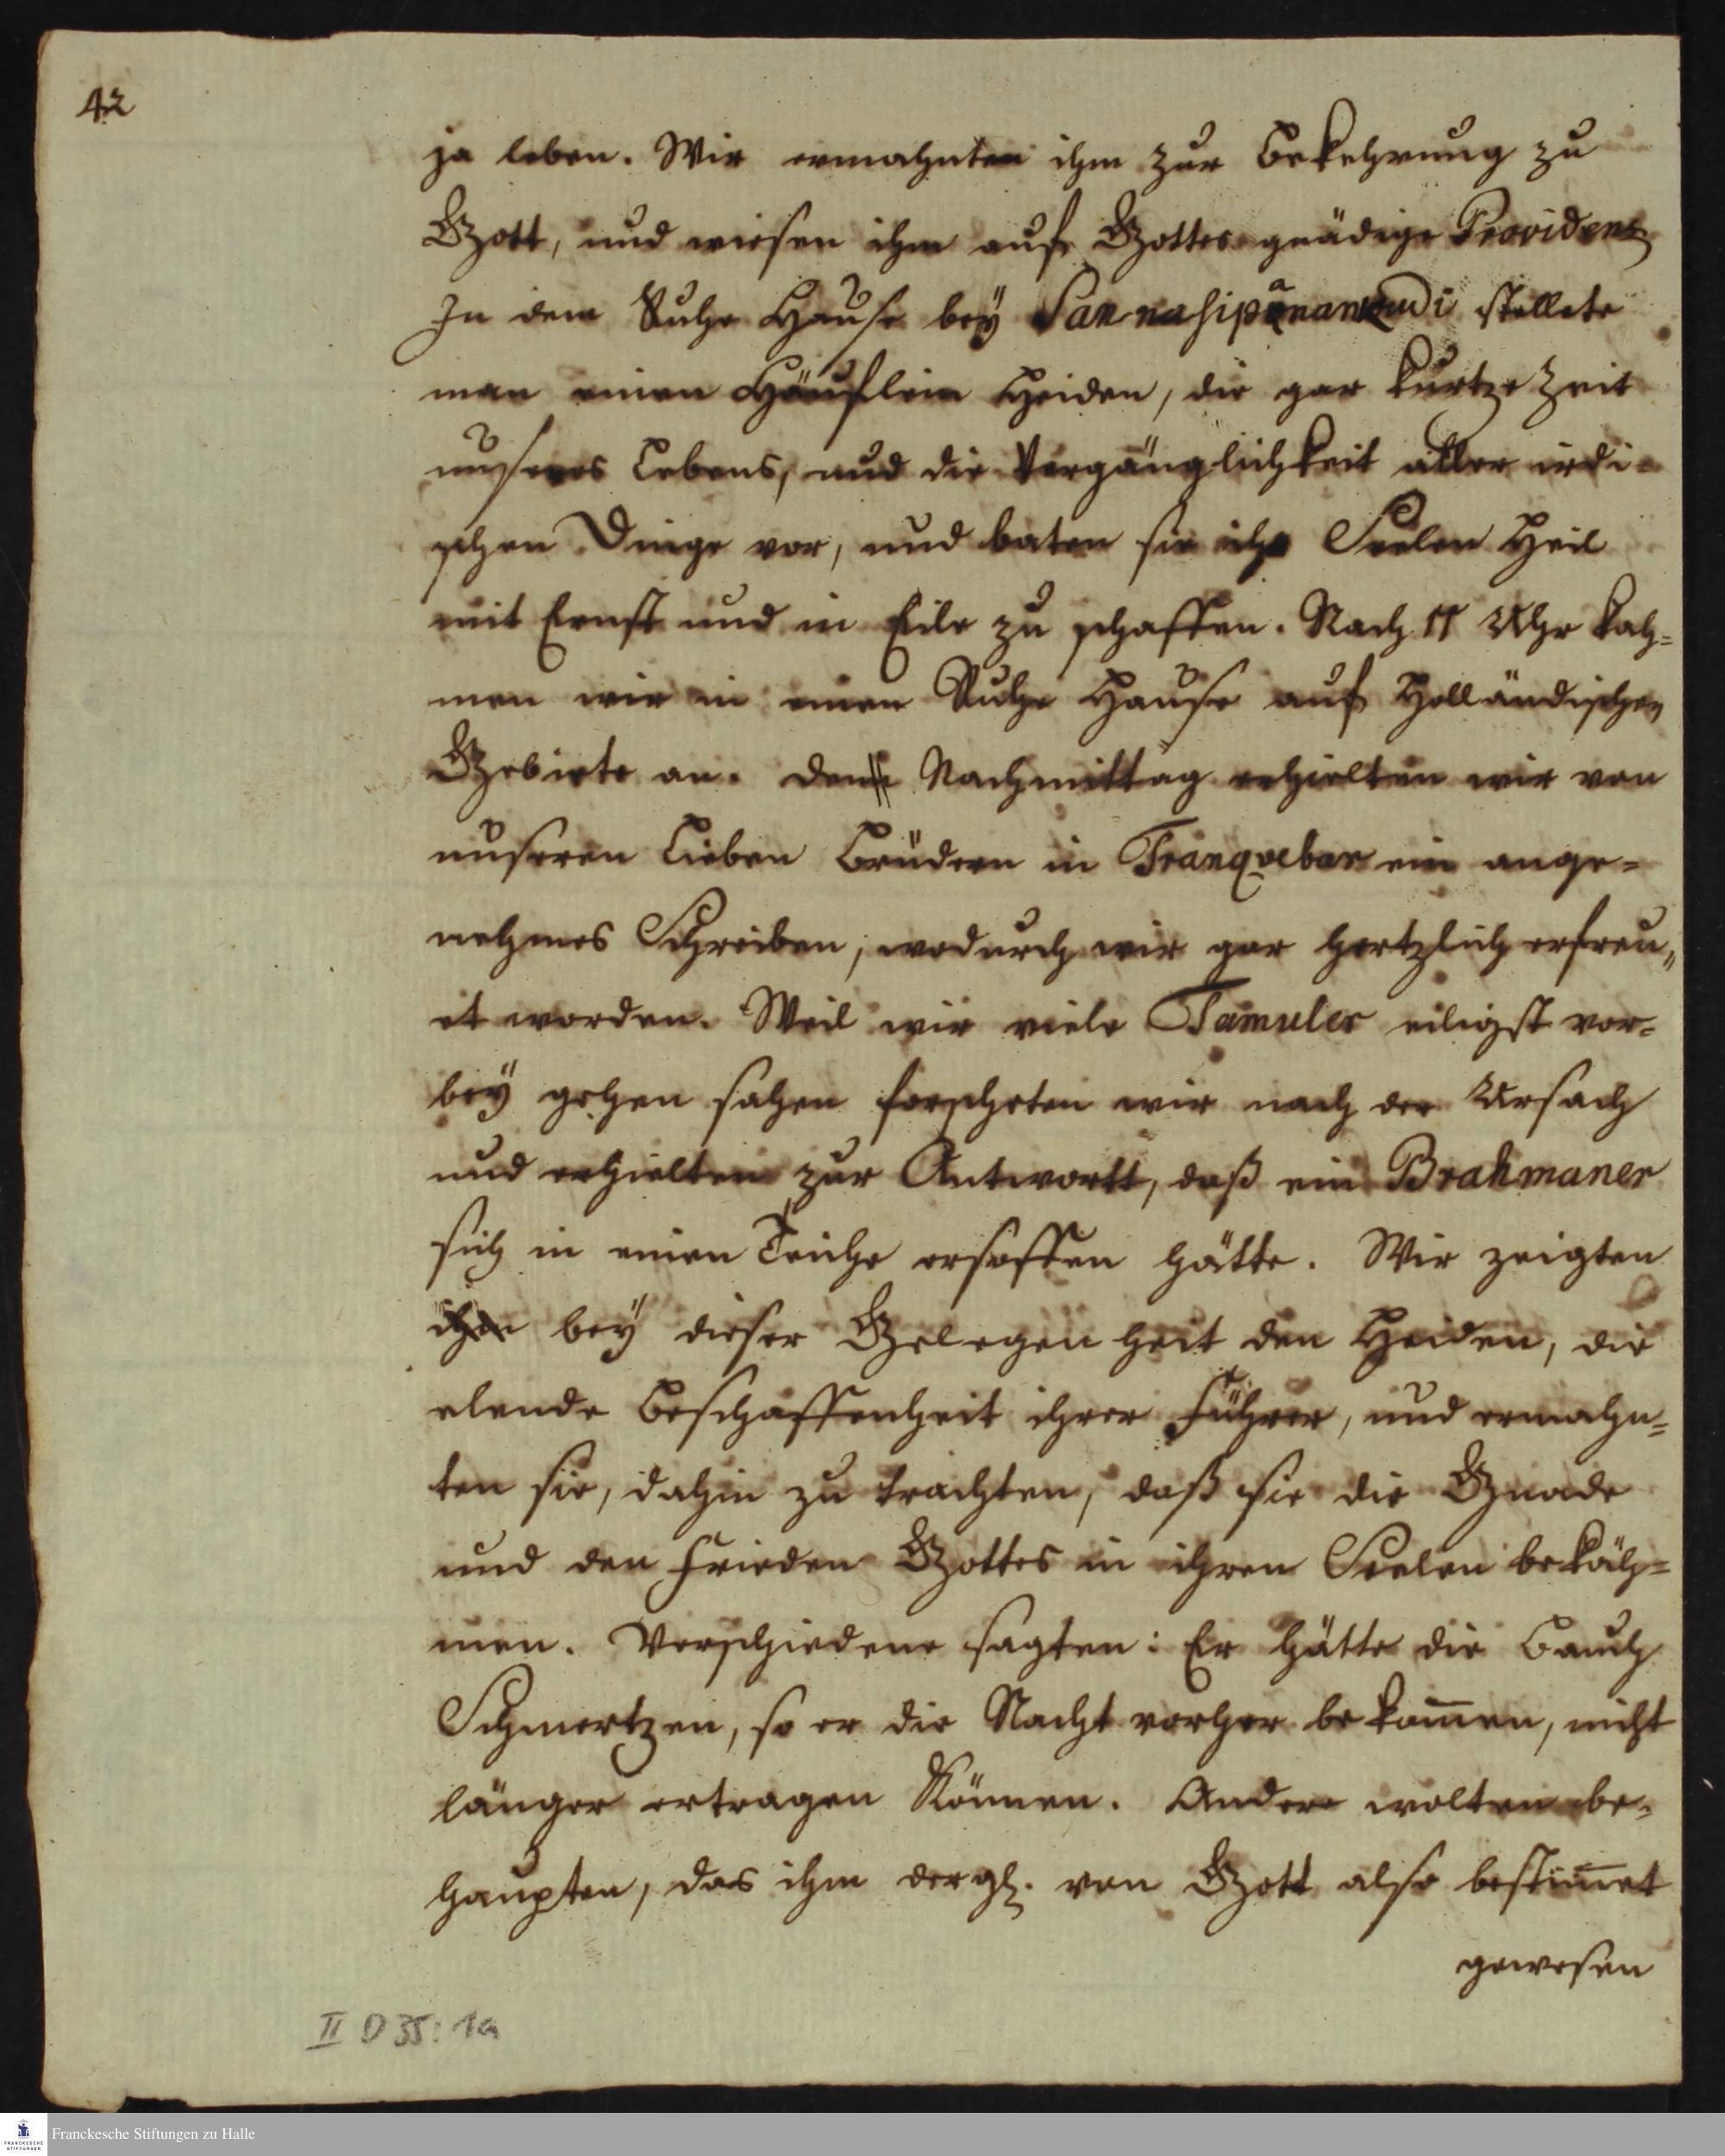 42
ja leben. Wir ermahnten ihm zur Bekehrung zu
Gott, und wiesen ihm auf Gottes gnädige Providenz
In dem Ruhe Hause bey stellete
man einen Häuflein Heiden, die gar kurtze Zeit
unseres Lebens, und die Vergänglichkeit aller irdi-
schen Dinge vor, und baten sie ihr Seelen Heil
mit Ernst und in Eile zu schaffen. Nach 11 Uhr kah-
men wir in einen Ruhe Hause auf Holländischen
Gebiete an. den Nachmittag erhielten wir von
unseren Lieben Brüdern in Tranqvebar ein ange-
nehmes Schreiben, wodurch wir gar hertzlich erfreu-
et worden. Weil wir viele Tamuler eiligst vor-
bey gehen sahen forscheten wir nach der Ursach
und erhielten zur Antwortt, daß ein Brahmaner
sich in einen Teiche ersoffen hätte. Wir zeigten
bey dieser Gelegenheit den Heiden, die
elende Beschaffenheit ihrer Führer, und ermahn-
ten sie, dahin zu trachten, daß sie die Gnade
und den Frieden Gottes in ihren Seelen bekäh-
men. Verschiedene sagten: Er hätte die Bauch
Schmertzen, so er die Nacht vorher bekom̅en, nicht
länger ertragen Können. Andere wolten be-
haupten, das ihm dergl. von Gott also bestim̅et
gewesen
II D 35: 1a
Franckesche Stiftungen zu Halle